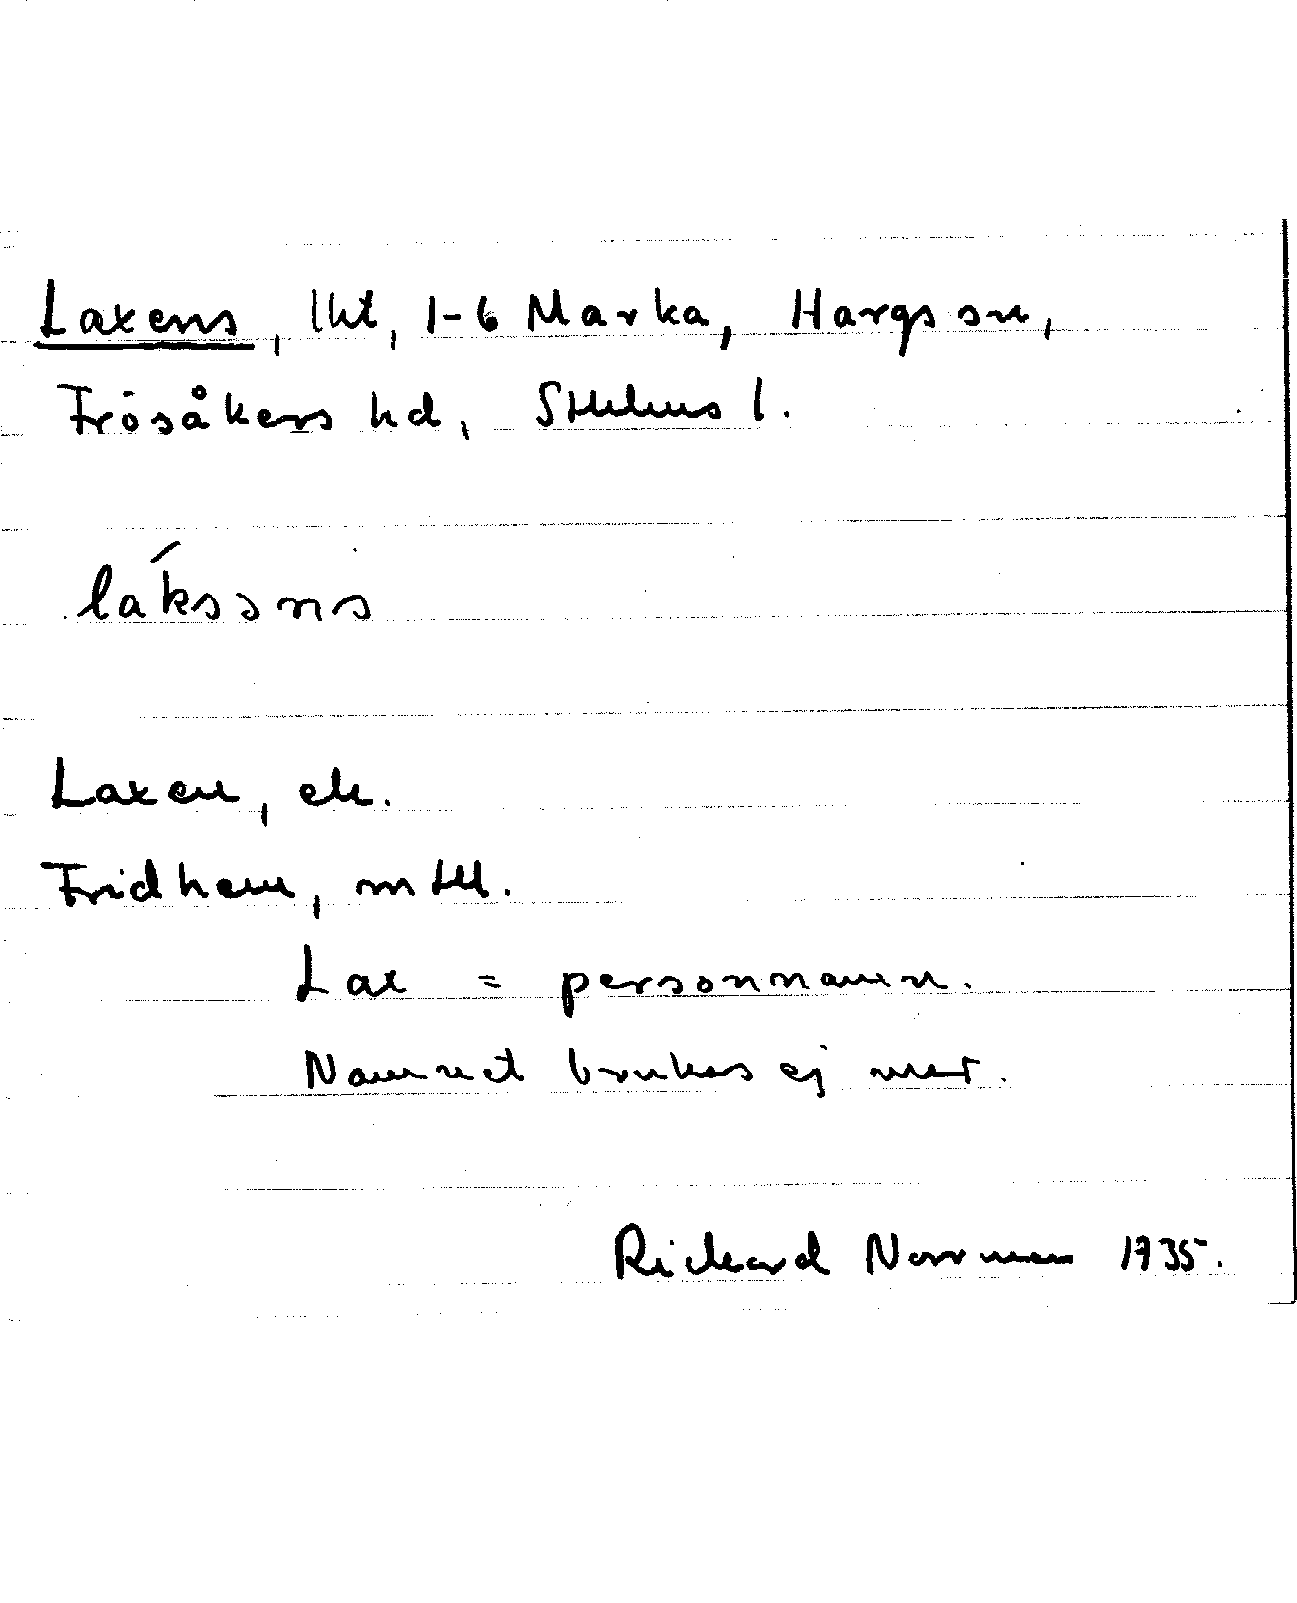 Laxens, lht, 1-6 Marka, Hargs sn,
Frösåkers hd, Sthlms l.
láksəns
Laxen, ek.
Fridhem, mtbl.
Lax = personnamn.
Namnet brukas ej mer.
Rickard Norrman 1935.